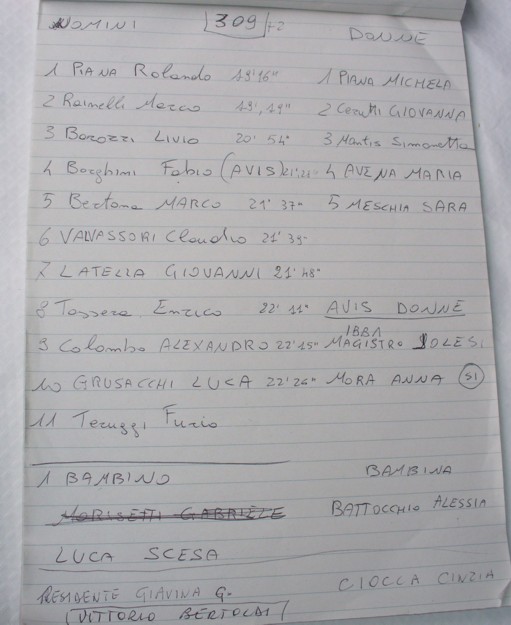 UOMINI 309 +2 DONNE
1 PIANA Rolando 19'16" 1 PIANA MICHELA
2 Rainelli Marco 19',19" 2 Cerutti GIOVANNA
3 Borozzi LIVIO 20' 54" 3 Mantis Simonetta
4 Borghini Fabio (AVIS) 4 AVENA MARIA
5 Bertona MARCO 21' 37" 5 MESCHIA SARA
6 VALVASSORI Claudio 21' 39"
7 LATELLA GIOVANNI 21' 48"
8 Tossera Enrico 22' 11" AVIS DONNE
IBBA
9 Colombo ALEXANDRO 22'15" MAGISTRO JOLESI
10 GRUSACCHI LUCA 22'26" MORA ANNA SI
11 Teruggi Furio
1 BAMBINO BAMBINA
MORISETTI GABRIELE BATTOCCHIO ALESSIA
LUCA SCESA
PRESIDENTE GIAVINA G. CIOCCA CINZIA
VITTORIO BERTOLDI